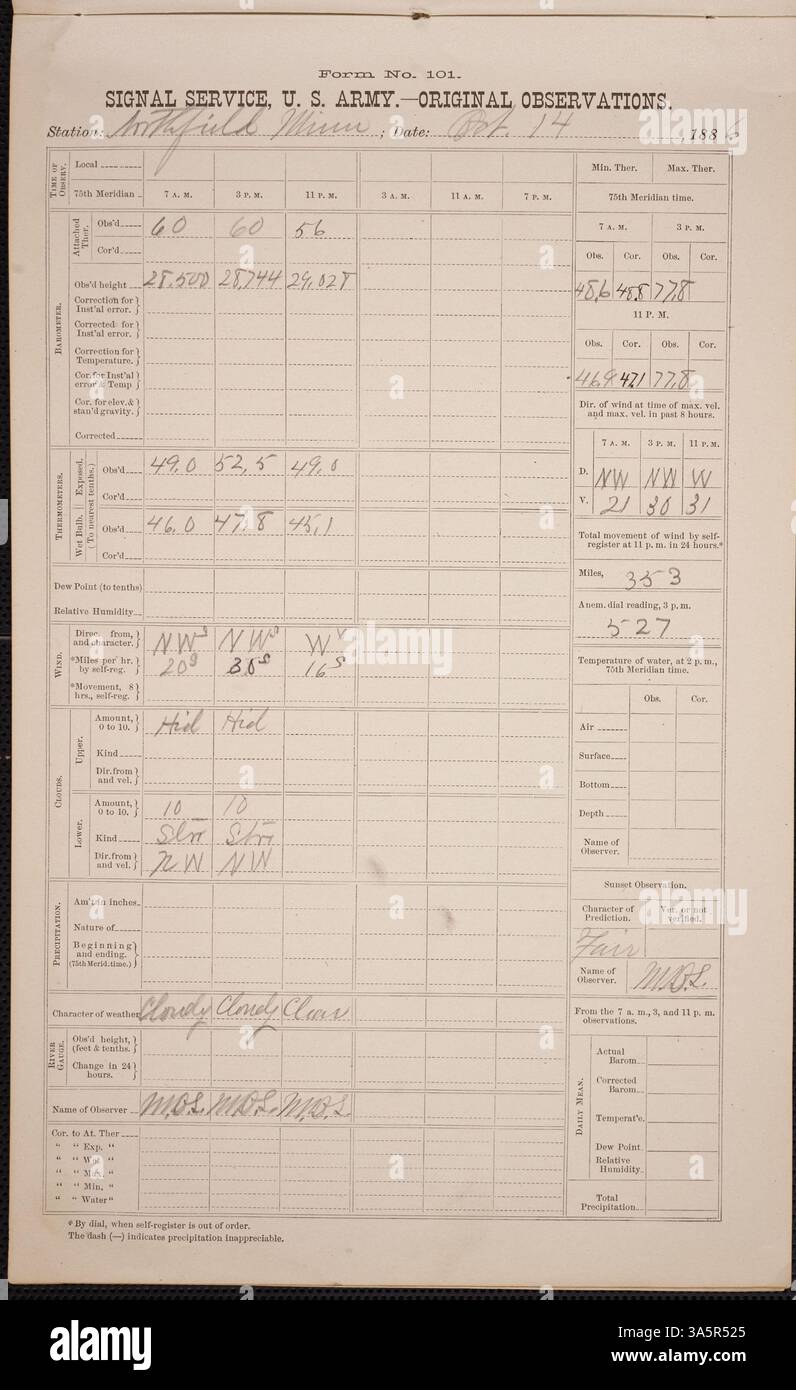 Form No. 101.
SIGNAL SERVICE, U. S. ARMY.—ORIGINAL OBSERVATIONS.
Station: Northfield Minn ; Date: Oct. 14 , 1886
TIME OF OBSERV.
Local
75th Meridian 7 A. M. 3 P. M. 11 P. M. 3 A. M. 11 A. M. 7 P. M.
BAROMETER.
Attached Ther.
Obs'd 60 60 56
Cor'd
Obs'd height 28.500 28.744 29.028
Correction for Inst'al error.
Corrected for Inst'al error.
Correction for Temperature.
Cor. for Inst'al error & Temp
Cor. for elev. & stan'd gravity.
Corrected
THERMOMETERS.
(To nearest tenths.)
Exposed.
Obs'd 49.0 52.5 49.0
Cor'd
Wet Bulb.
Obs'd 46.0 47.8 45.1
Cor'd
Dew Point (to tenths)
Relative Humidity
WIND.
Direc. from, and character. NW s NW s W
*Miles per hr. by self-reg. 20 s 30 s 16 s
*Movement, 8 hrs., self-reg.
CLOUDS.
Upper.
Amount, 0 to 10. Hid Hid
Kind
Dir. from and vel.
Lower.
Amount, 0 to 10. 10 10
Kind
Dir. from and vel. NW NW
PRECIPITATION.
Am't in inches
Nature of
Beginning and ending. (75th Merid. time.)
Character of weather Cloudy Cloudy Clear
RIVER GAUGE.
Obs'd height, (feet & tenths.
Change in 24 hours.
Name of Observer
Cor. to At. Ther
" " Exp. "
" " Wet "
" " Max. "
" " Min. "
" " Water "
* By dial, when self-register is out of order.
The dash (—) indicates precipitation inappreciable.
Min. Ther. Max. Ther.
75th Meridian time.
7 A. M. 3 P. M.
Obs. Cor. Obs. Cor.
48.6 48.8 77.8
11 P. M.
Obs. Cor. Obs. Cor.
46.9 47.1 77.8
Dir. of wind at time of max. vel. and max. vel. in past 8 hours.
7 A. M. 3 P. M. 11 P. M.
D. NW NW W
V. 21 30 31
Total movement of wind by self-register at 11 p. m. in 24 hours.*
Miles, 353
Anem. dial reading, 3 p. m.
527
Temperature of water, at 2 p. m., 75th Meridian time.
Obs. Cor.
Air
Surface
Bottom
Depth
Name of Observer.
Sunset Observation.
Character of Prediction. Ver. or not verified.
Fair
Name of Observer.
From the 7 a. m., 3, and 11 p. m. observations.
DAILY MEAN.
Actual Barom.
Corrected Barom.
Temperat'e.
Dew Point.
Relative Humidity.
Total Precipitation.
alamy
alamy
alamy
a
3A5R525